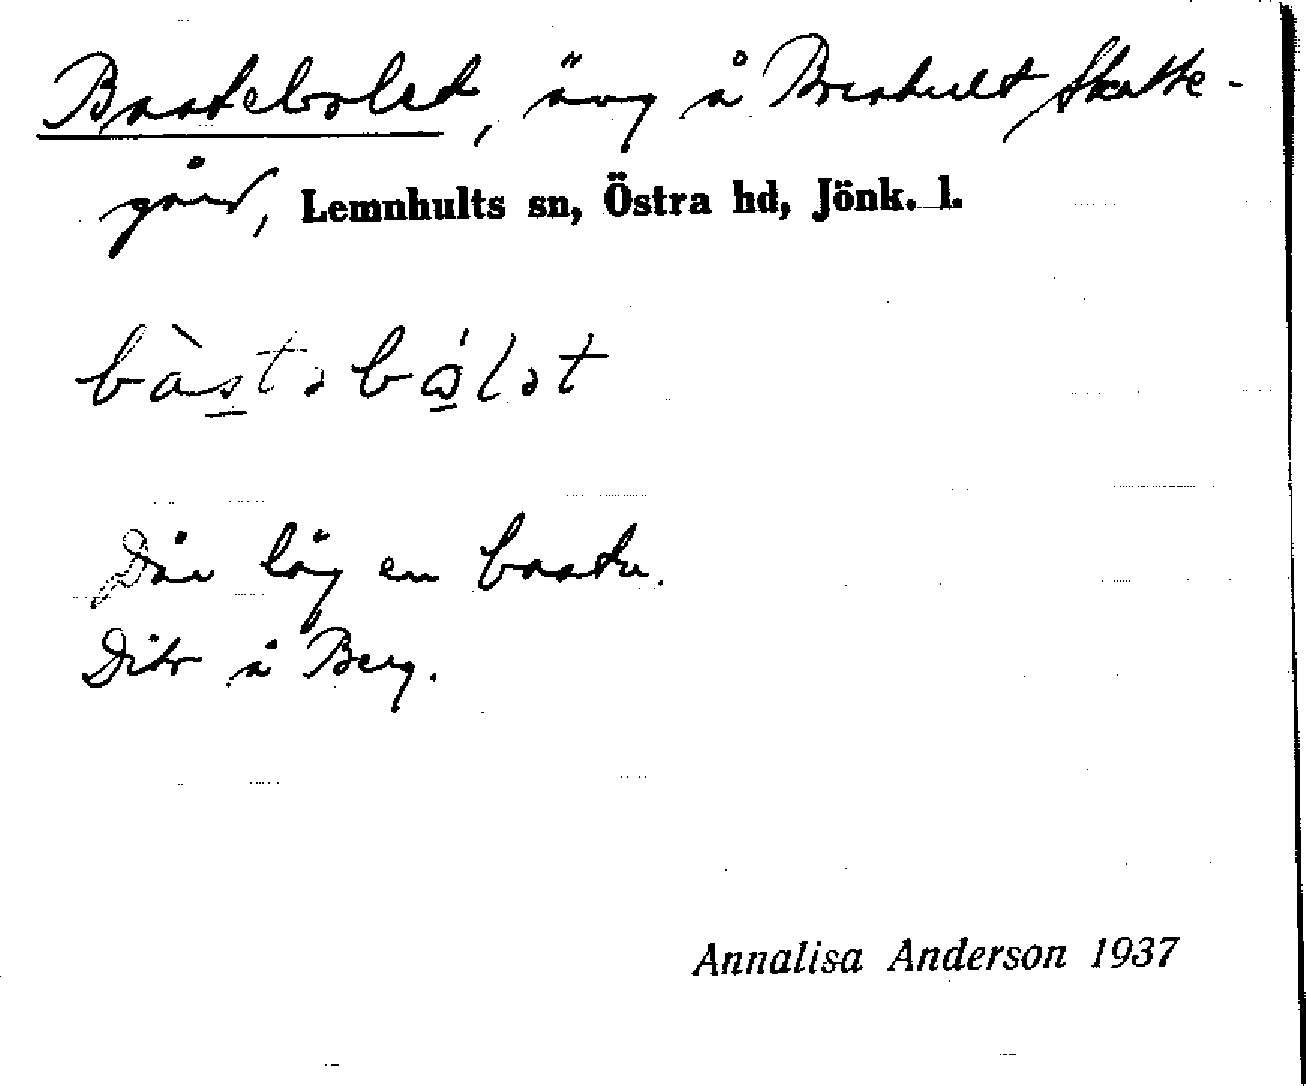 Bastebolet, äng å Brestult Skatte-
gård, Lemnhults sn, Östra hd, Jönk. l.
bàstəbɷ́lət
Där låg en bastu.
Dito å Berg.
Annalisa Anderson 1937